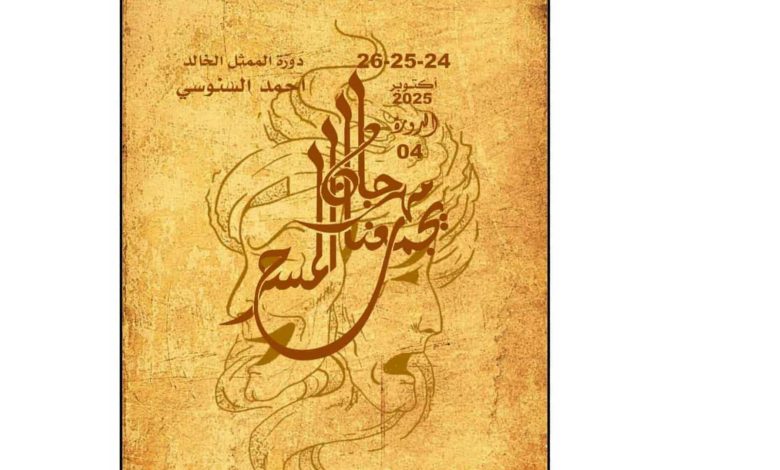 دورة الممثل الخالد
احمد السنوسي
26-25-24
أكتوبر
2025
الدورة
04
مهرجان
يجمعنا
المسرح